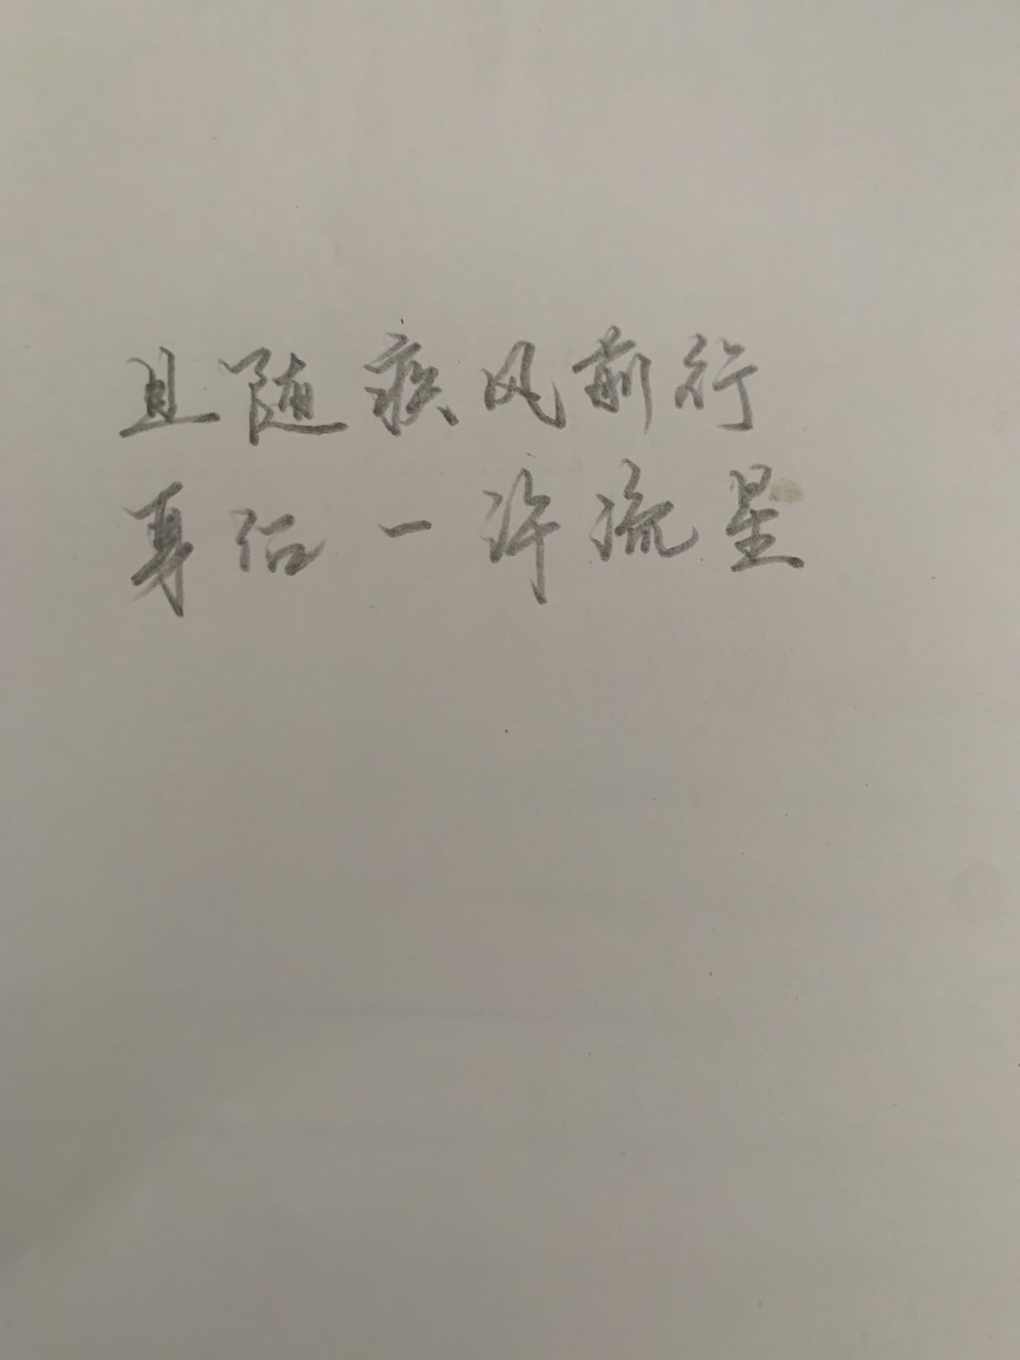 且随疾风前行
身后一许流星